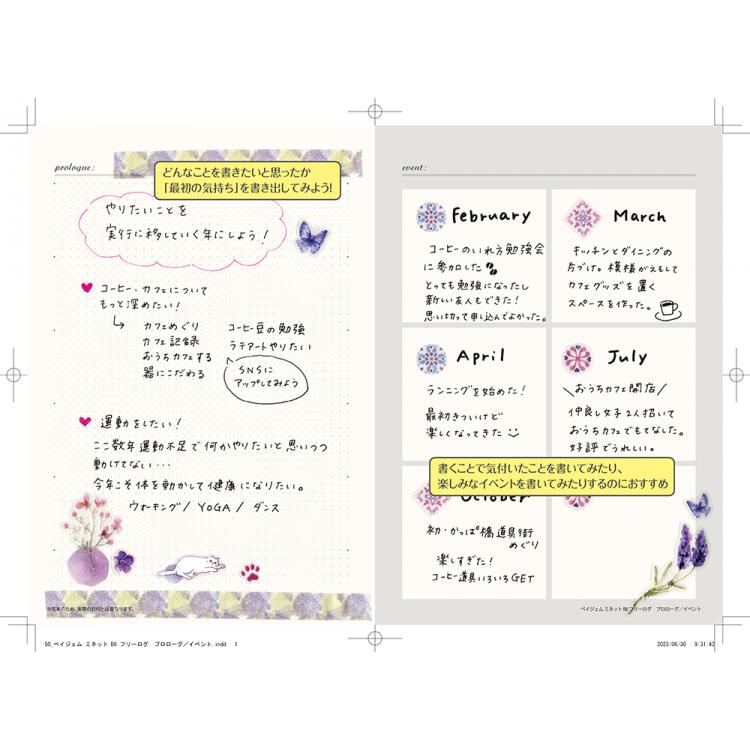 prologue:
どんなことを書きたいと思ったか
「最初の気持ち」を書き出してみよう!
やりたいことを
実行に移していく年にしよう!
コーヒー・カフェについて
もっと深めたい!
カフェめぐり
カフェ記録
おうちカフェする
器にこだわる
コーヒー豆の勉強
ラテアートやりたい
SNSに
アップしてみよう
運動をしたい!
ここ数年運動不足で何かやりたいと思いつつ
動けてない…
今年こそ体を動かして健康になりたい。
ウォーキング/ YOGA / ダンス
※見本のため、実際の日付とは異なります。
event:
February
コーヒーのいれ方勉強会
に参加した
とっても勉強になったし
新しい友人もできた!
思い切って申し込んでよかった。
March
キッチンとダイニングの
片づけ。模様がえもして
カフェグッズを置く
スペースを作った。
April
ランニングを始めた!
最初きついけど
楽しくなってきた
July
\おうちカフェ開店/
仲良し女子2人招いて
おうちカフェでもてなした。
好評でうれしい。
書くことで気付いたことを書いてみたり、
楽しみなイベントを書いてみたりするのにおすすめ
October
初・かっぱ橋道具街
めぐり
楽しすぎた!
コーヒー道具いろいろGET
ペイジェム ミネット B6 フリーログ プロローグ/イベント
50_ペイジェム ミネット B6 フリーログ プロローグ/イベント.indd 1
2023/06/30 9:31:42